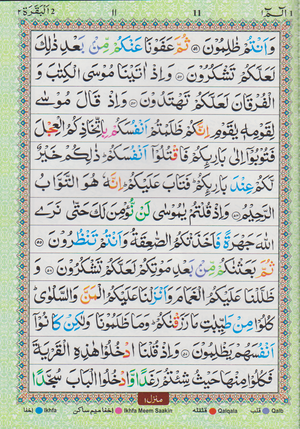 ٢ اَلْبَقَرَة ٢ ١١ 11 الٓمّٓ ١
وَاَنْتُمْ ظٰلِمُوْنَ ۝٥١ ثُمَّ عَفَوْنَا عَنْكُمْ مِّنْۢ بَعْدِ ذٰلِكَ
لَعَلَّكُمْ تَشْكُرُوْنَ ۝٥٢ وَاِذْ اٰتَيْنَا مُوْسَى الْكِتٰبَ وَ
الْفُرْقَانَ لَعَلَّكُمْ تَهْتَدُوْنَ ۝٥٣ وَاِذْ قَالَ مُوْسٰى
لِقَوْمِهٖ يٰقَوْمِ اِنَّكُمْ ظَلَمْتُمْ اَنْفُسَكُمْ بِاتِّخَاذِكُمُ الْعِجْلَ
فَتُوْبُوْٓا اِلٰى بَارِئِكُمْ فَاقْتُلُوْٓا اَنْفُسَكُمْ ۭ ذٰلِكُمْ خَيْرٌ
لَّكُمْ عِنْدَ بَارِئِكُمْ ۭ فَتَابَ عَلَيْكُمْ ۭ اِنَّهٗ هُوَ التَّوَّابُ
الرَّحِيْمُ ۝٥٤ وَاِذْ قُلْتُمْ يٰمُوْسٰى لَنْ نُّؤْمِنَ لَكَ حَتّٰى نَرَى
اللّٰهَ جَهْرَةً فَاَخَذَتْكُمُ الصّٰعِقَةُ وَاَنْتُمْ تَنْظُرُوْنَ ۝٥٥
ثُمَّ بَعَثْنٰكُمْ مِّنْۢ بَعْدِ مَوْتِكُمْ لَعَلَّكُمْ تَشْكُرُوْنَ ۝٥٦ وَ
ظَلَّلْنَا عَلَيْكُمُ الْغَمَامَ وَاَنْزَلْنَا عَلَيْكُمُ الْمَنَّ وَالسَّلْوٰى ۭ
كُلُوْا مِنْ طَيِّبٰتِ مَا رَزَقْنٰكُمْ ۭ وَمَا ظَلَمُوْنَا وَلٰكِنْ كَانُوْٓا
اَنْفُسَهُمْ يَظْلِمُوْنَ ۝٥٧ وَاِذْ قُلْنَا ادْخُلُوْا هٰذِهِ الْقَرْيَةَ
فَكُلُوْا مِنْهَا حَيْثُ شِئْتُمْ رَغَدًا وَّادْخُلُوا الْبَابَ سُجَّدًا
منزل ١
اخفا Ikhfa اخفا میم ساکن Ikhfa Meem Saakin قلقلہ Qalqala قلب Qalb